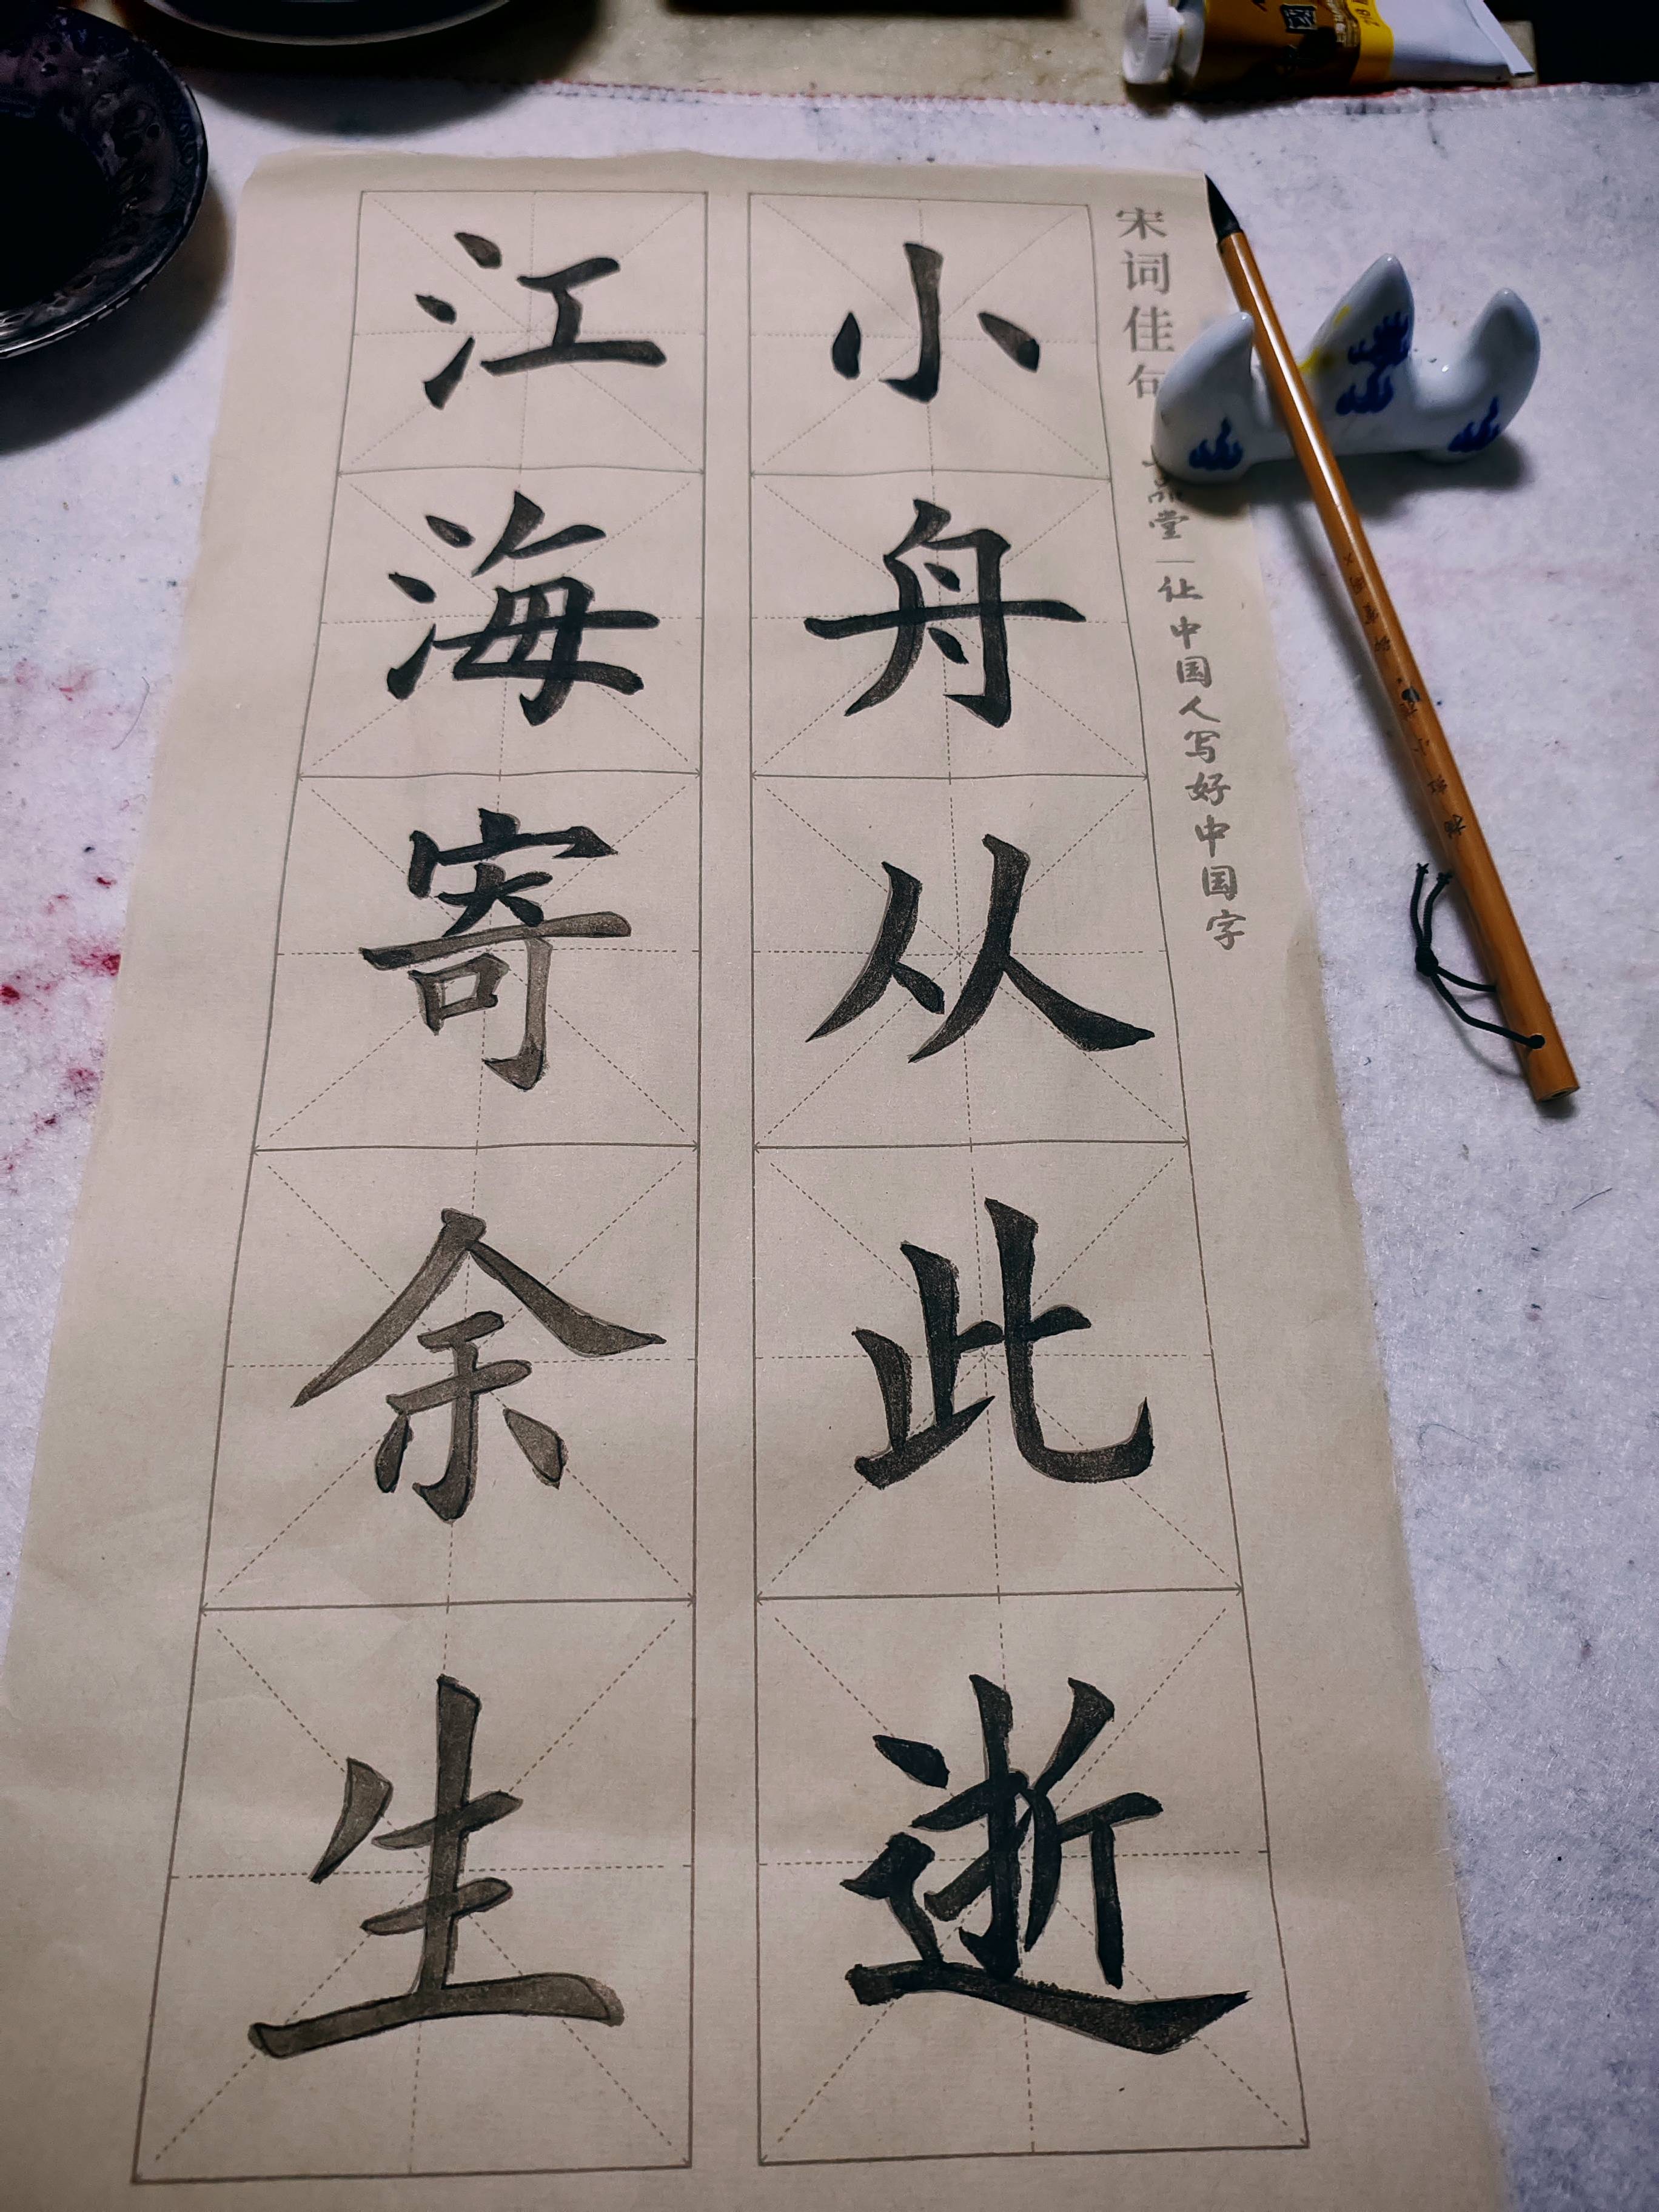 宋词佳句
品堂|让中国人写好中国字
小舟从此逝
江海寄余生